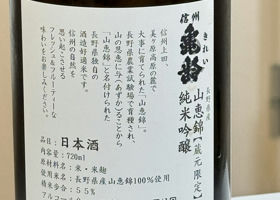 信州
亀齢
きれい
長野県産
山恵錦【蔵元限定】
純米吟醸
信州上田、
美ヶ原高原の麓で
大事に育てられた「山恵錦」。
長野県農業試験場で育種され、
山の恩恵に与(あずか)ることから
「山恵錦」と名付けられた
長野県独自の
酒造好適米です。
信州の自然を
思い起こさせる
フレッシュ&フルーティーな
味わいをお楽しみください。
品目：日本酒
内容量：720ml
原材料名：米・米麹
使用米：長野県産山恵錦100%使用
精米歩合：55%